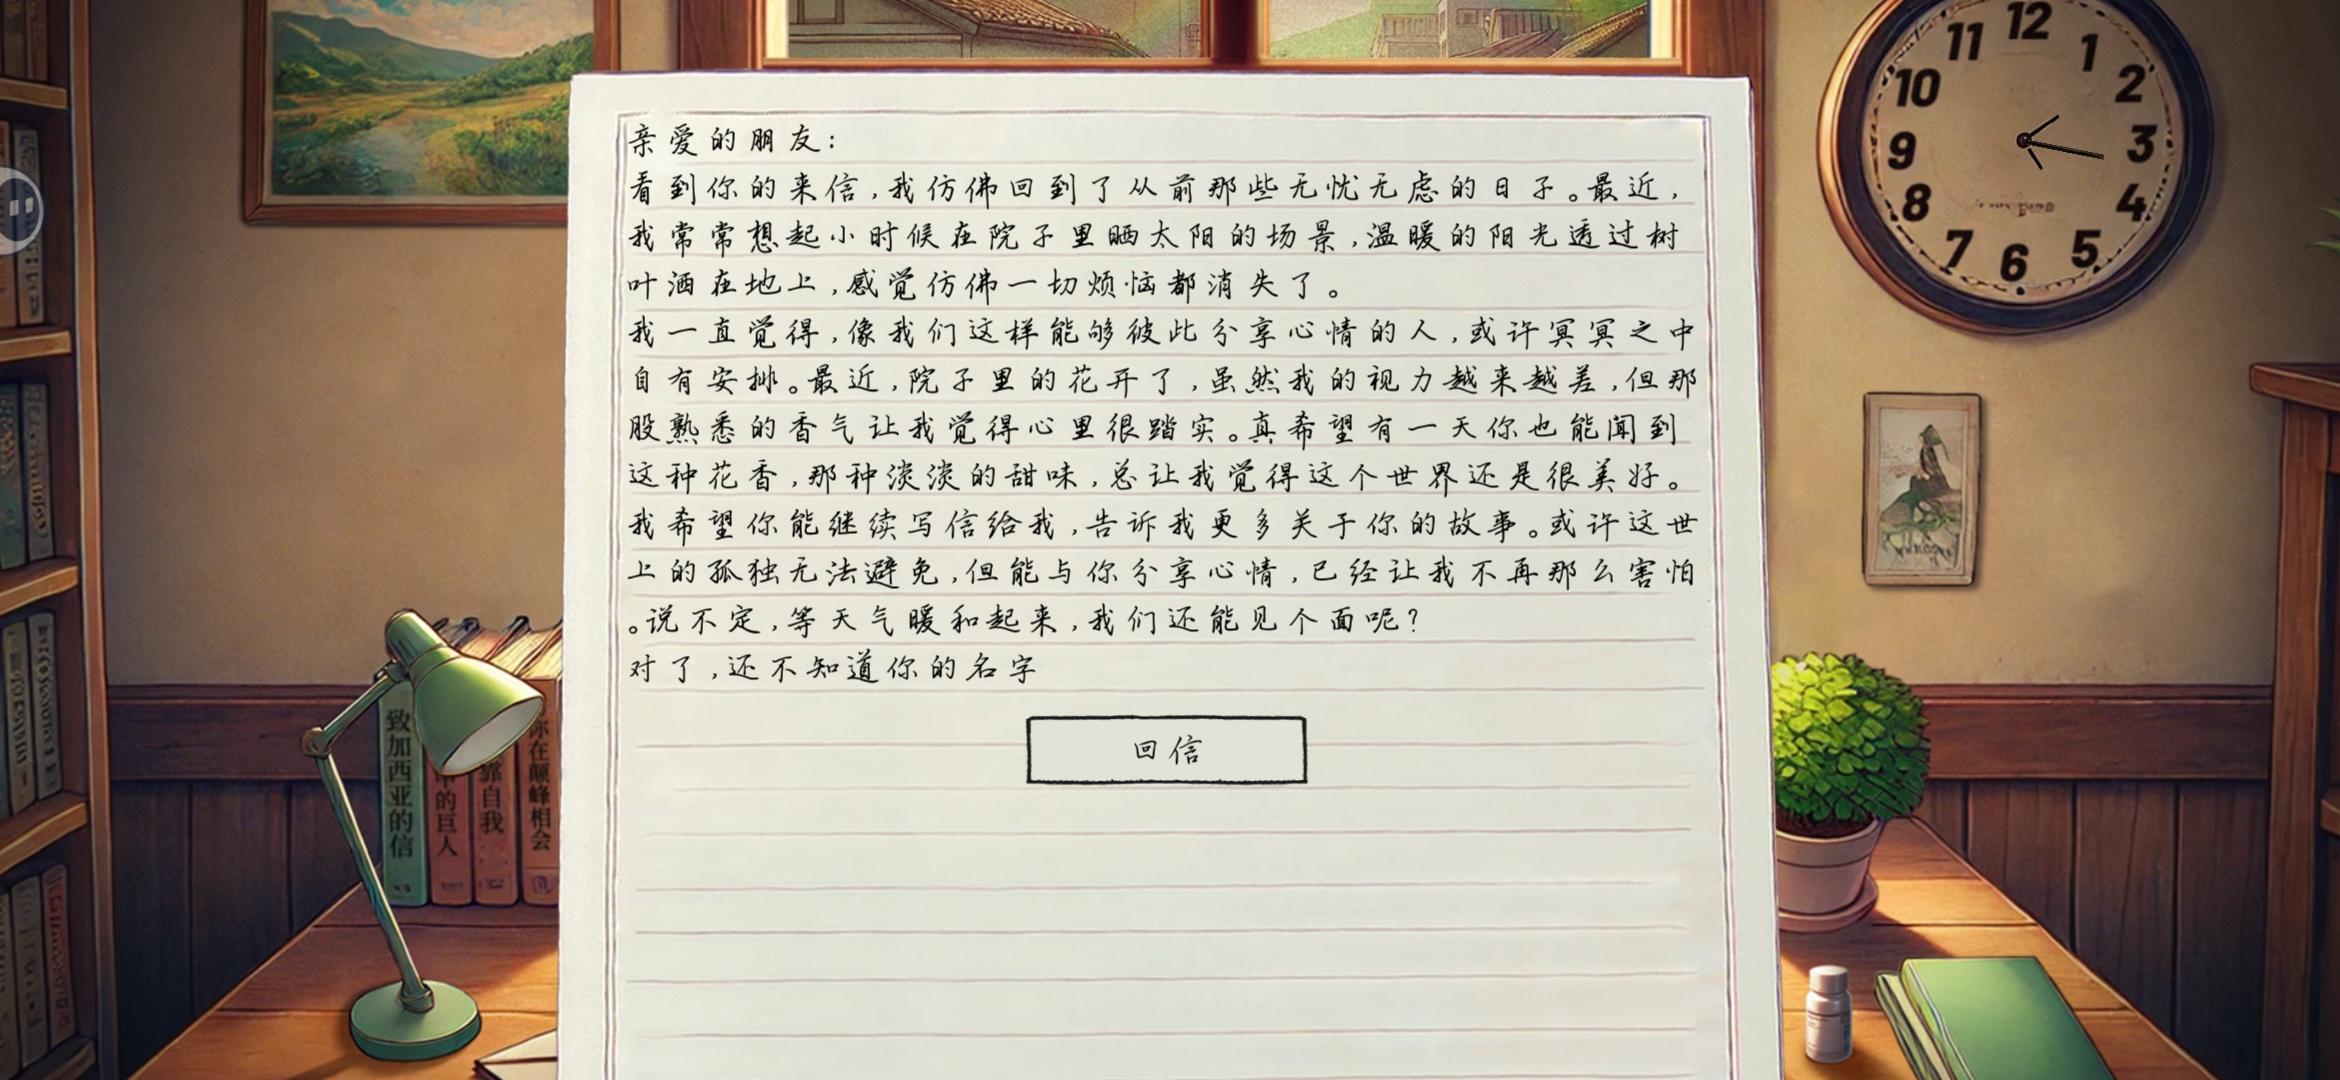 亲爱的朋友：
看到你的来信，我仿佛回到了从前那些无忧无虑的日子。最近，
我常常想起小时候在院子里晒太阳的场景，温暖的阳光透过树
叶洒在地上，感觉仿佛一切烦恼都消失了。
我一直觉得，像我们这样能够彼此分享心情的人，或许冥冥之中
自有安排。最近，院子里的花开了，虽然我的视力越来越差，但那
股熟悉的香气让我觉得心里很踏实。真希望有一天你也能闻到
这种花香，那种淡淡的甜味，总让我觉得这个世界还是很美好。
我希望你能继续写信给我，告诉我更多关于你的故事。或许这世
上的孤独无法避免，但能与你分享心情，已经让我不再那么害怕
。说不定，等天气暖和起来，我们还能见个面呢？
对了，还不知道你的名字
回信
12
1
2
3
4
5
6
7
8
9
10
11
致加西亚的信
的巨人
靠自我
你在颠峰相会